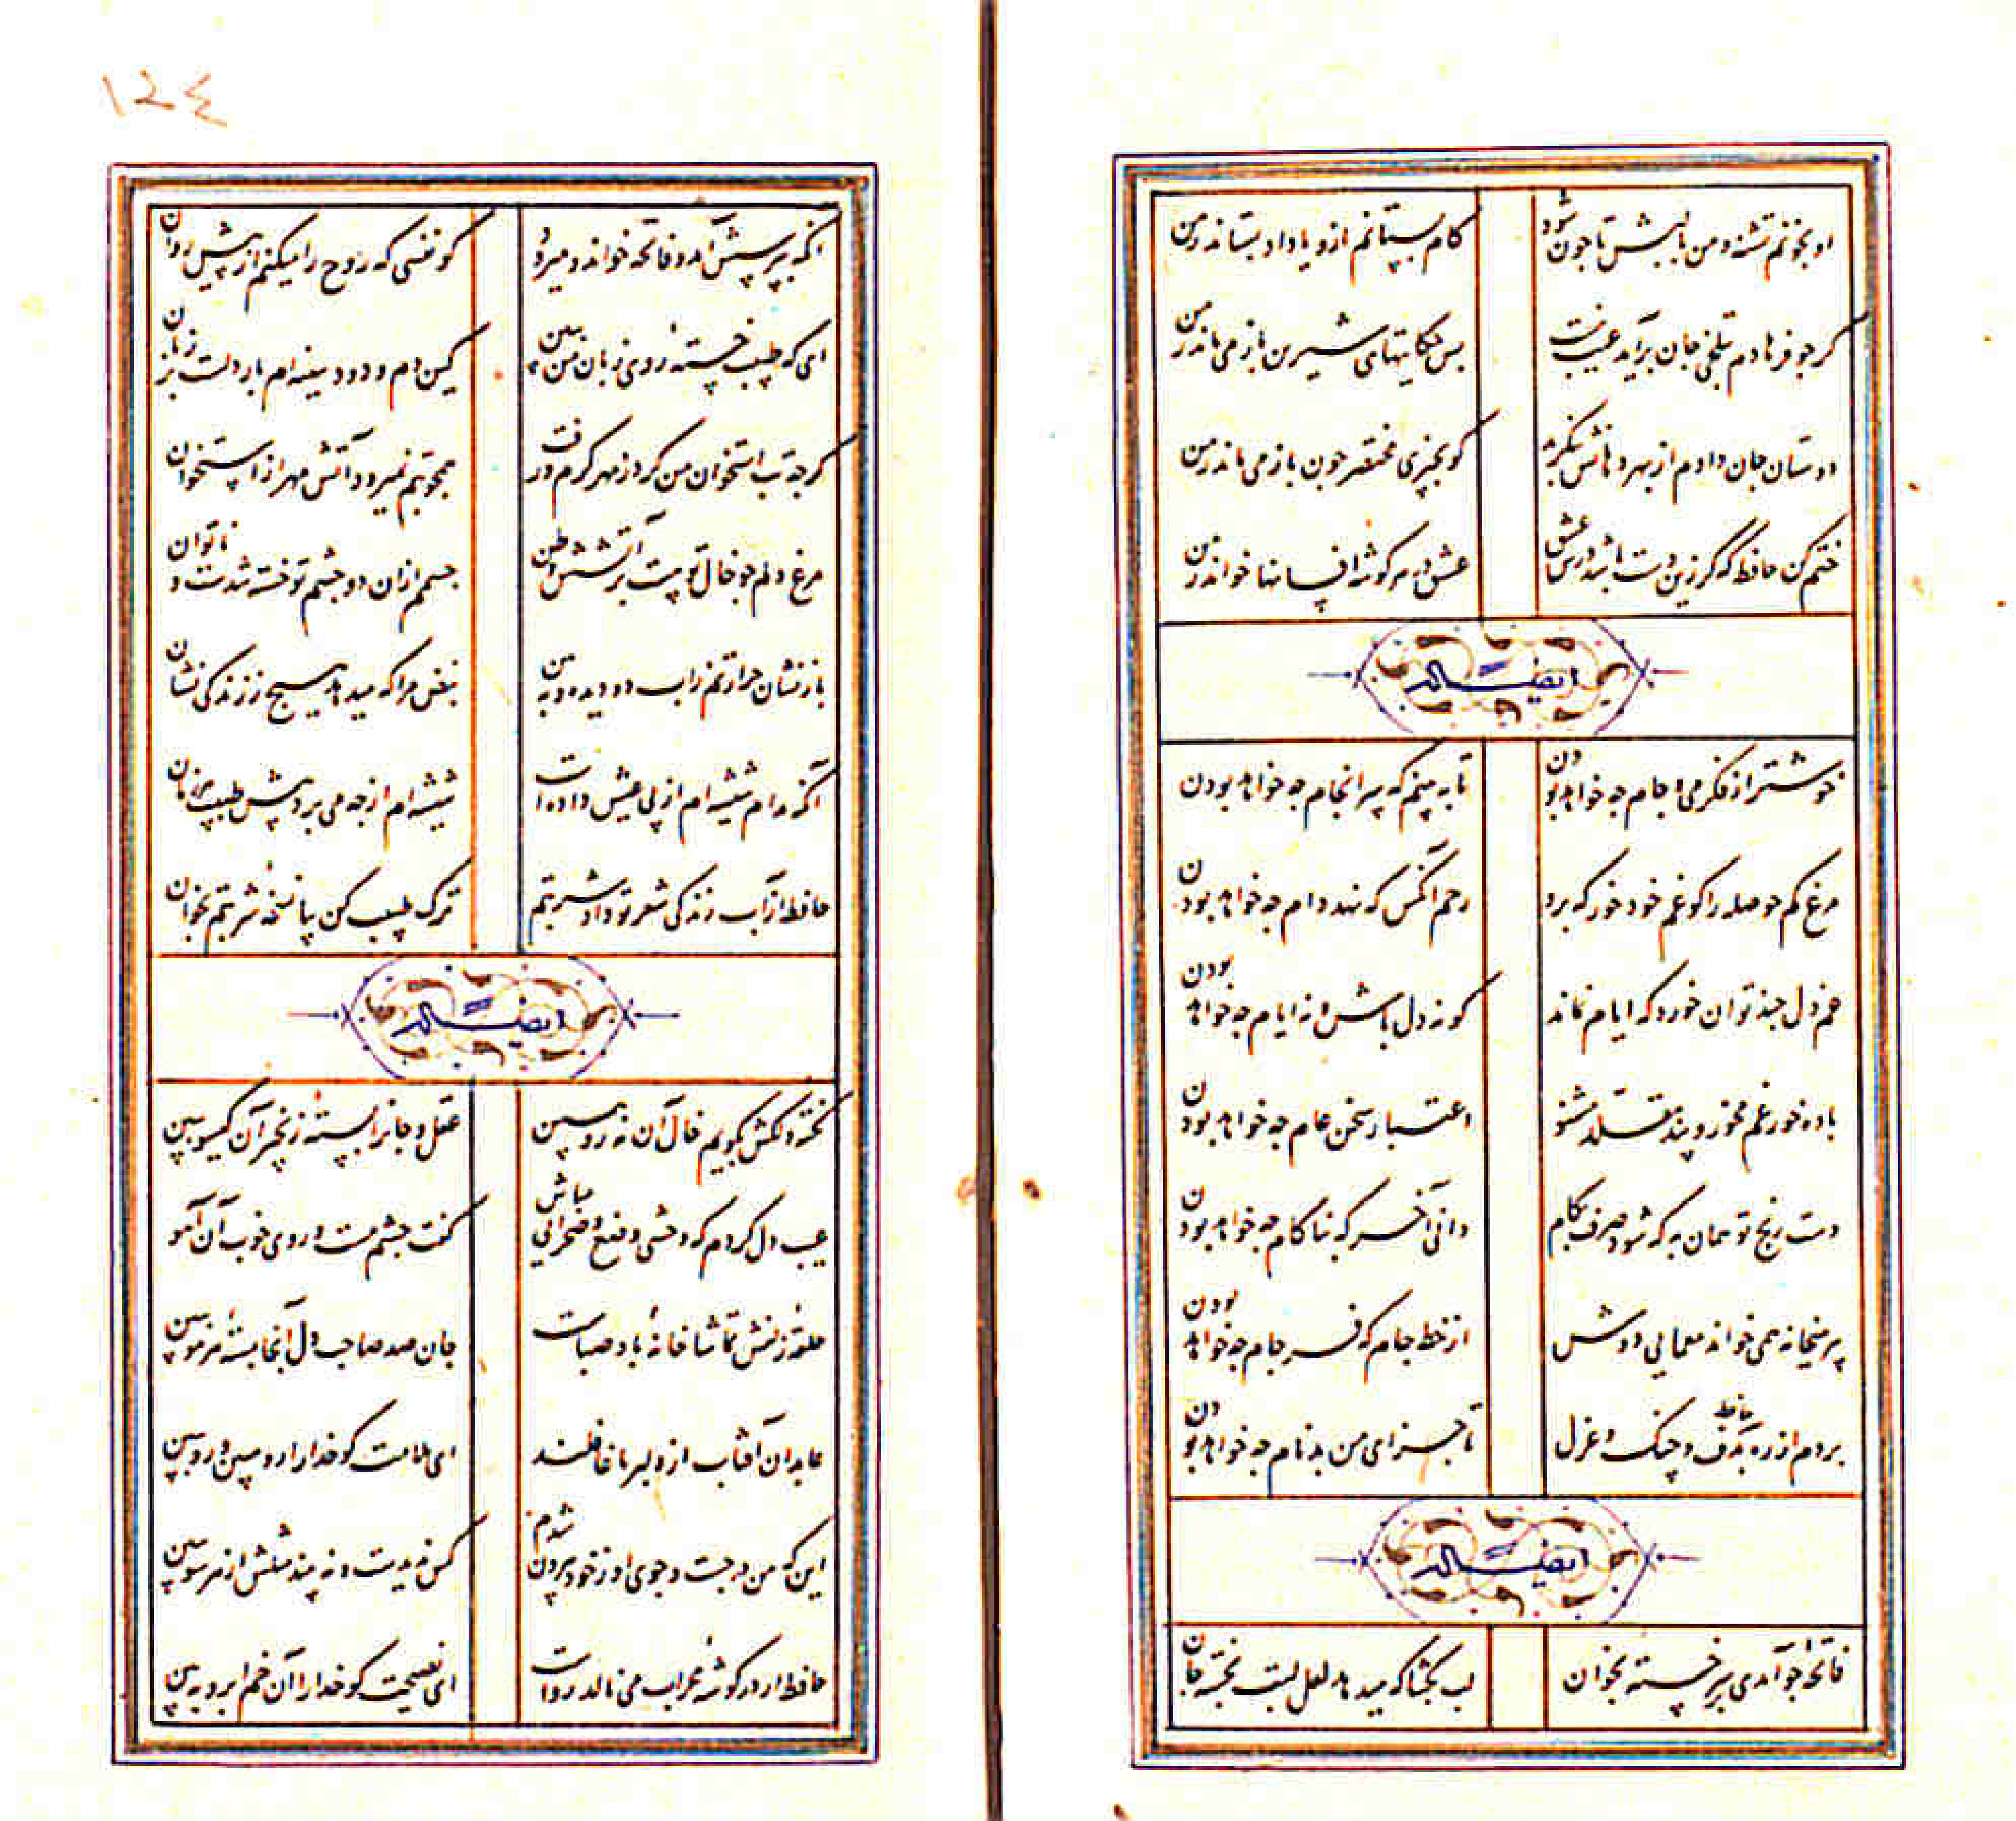 او بخونم تشنه و من بر لبش تا چون شود
کام بستانم ازو یا داد بستاند ز من
کر جو فرهادم بتلخی جان برآید عیب نیست
بس حکایتهای شیرین باز می ماند ز من
دوستان جان دادم از بهر دهانش بنگرید
کو بچیزی مختصر جون باز می ماند ز من
ختم کن حافظ که کر زین دست باشد درس عشق
عشق در هر کوشه افسانها خواند ز من
ایضا له
خوشتر از فکر می و جام جه خواهد بودن
تا به بینم که سرانجام جه خواهد بودن
مرغ کم حوصله را کو غم خود خور که برو
رحم آنکس که نهد دام جه خواهد بودن
غم دل جند توان خورد که ایام نماند
کو نه دل باش و نه ایام جه خواهد بودن
باده خور غم مخور و پند مقلد مشنو
اعتبار سخن عام جه خواهد بودن
دست رنج تو همان به که شود صرف بکام
دانی آخر که بناکام جه خواهد بودن
پر میخانه همی خواند معمایی دوش
از خط جام که فرجام جه خواهد بودن
بردم از ره دل حافظ بدف و چنک و غزل
تا جزای من بدنام جه خواهد بودن
ایضا له
فاتحهٔ جو آمدی بر سر خسته بخوان
لب بکشا که میدهد لعل لبت بخسته جان
١٢٤
آنکه بپرسش آمد و فاتحه خواند و میرود
کو نفسی که روح را میکنم از پیش روان
ای که طبیب خستهٔ روی زبان من ببین
کین دم و دود سینه ام بار دلست بر زبان
کرجه تب استخوان من کرد ز مهر کرم و رفت
همجو تبم نمیرود آتش مهر از استخوان
مرغ دلم جو خال تو هست بر آتشش وطن
جسمم ازان دو جشم تو خسته شدست و ناتوان
باز نشان حرارتم ز آب دو دیده و به بین
نبض مرا که میدهد هیچ ز زندکی نشان
آنکه مدام شیشه ام از پی عیش داده است
شیشه ام از جه می برد پیش طبیب هر زمان
حافظ از آب زندکی شعر تو داد شربتم
ترک طبیب کن بیا نسخهٔ شربتم بخوان
ایضا له
نکتهٔ دلکش بکویم خال آن مه رو ببین
عقل و جانرا بستهٔ زنجیر آن کیسو ببین
عیب دل کردم که وحشی وضع و صحرایی مباش
کفت جشم مست و روی خوب آن آهو
حلقهٔ زلفش تماشا خانهٔ باد صباست
جان صد صاحب دل آنجا بستهٔ هر مو ببین
عابدان آفتاب از دلبر ما غافلند
ای ملامت کو خدا را رو مبین و رو ببین
این که من در جست و جوی او ز خود بیرون شدم
کس ندیدست و نه بیند مثلش از هر سو ببین
حافظ ار در کوشهٔ محراب می نالد رواست
ای نصیحت کو خدا را آن خم ابرو ببین